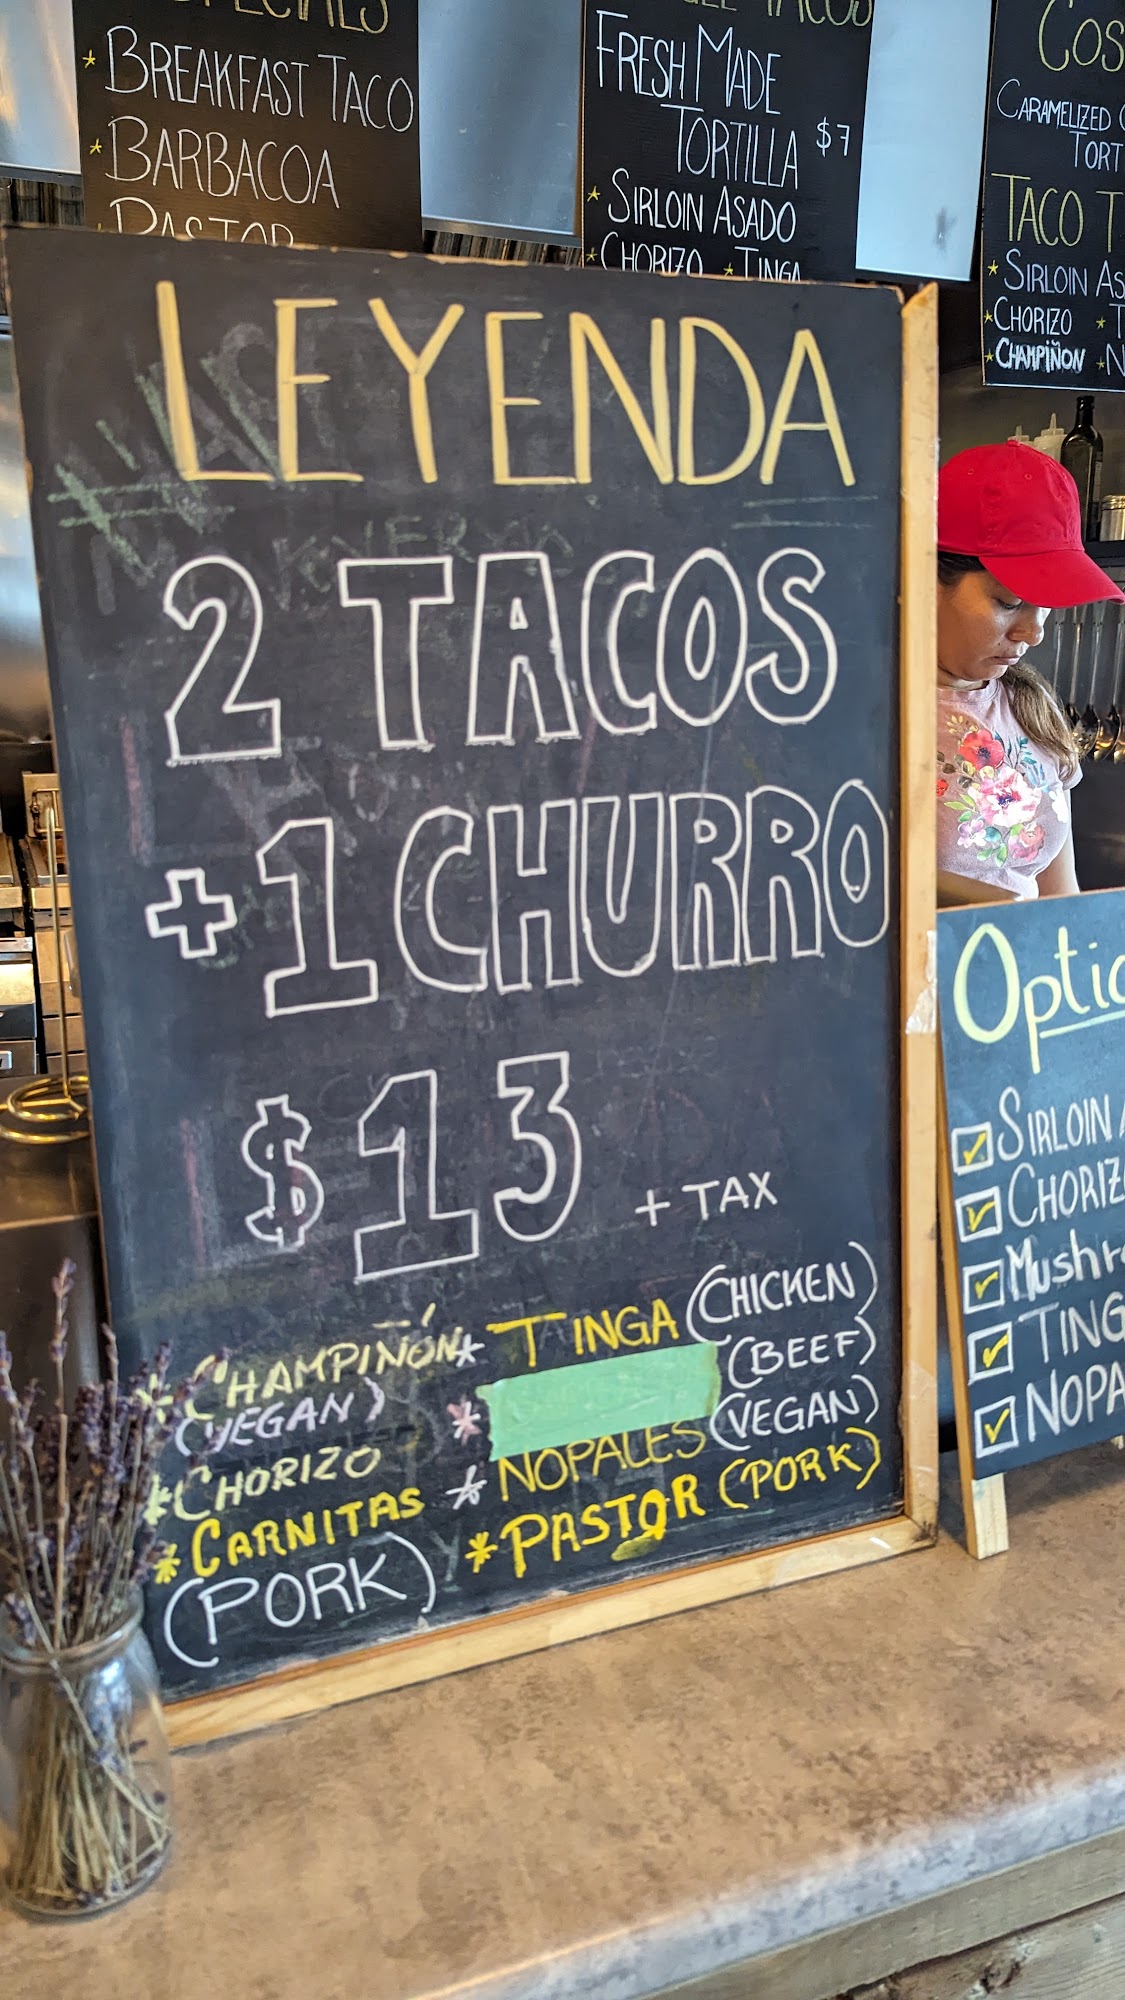 BREAKFAST TACO
BARBACOA
PASTOR
TACOS
FRESH MADE
TORTILLA $7
SIRLOIN ASADO
CHORIZO TINGA
CARAMELIZED
TACO
SIRLOIN
CHORIZO
CHAMPIÑON
LEYENDA
2 TACOS
+1 CHURRO
$13 + TAX
CHAMPIÑÓN
(VEGAN)
CHORIZO
CARNITAS
(PORK)
TINGA (CHICKEN)
(BEEF)
NOPALES (VEGAN)
PASTOR (PORK)
SIRLOIN